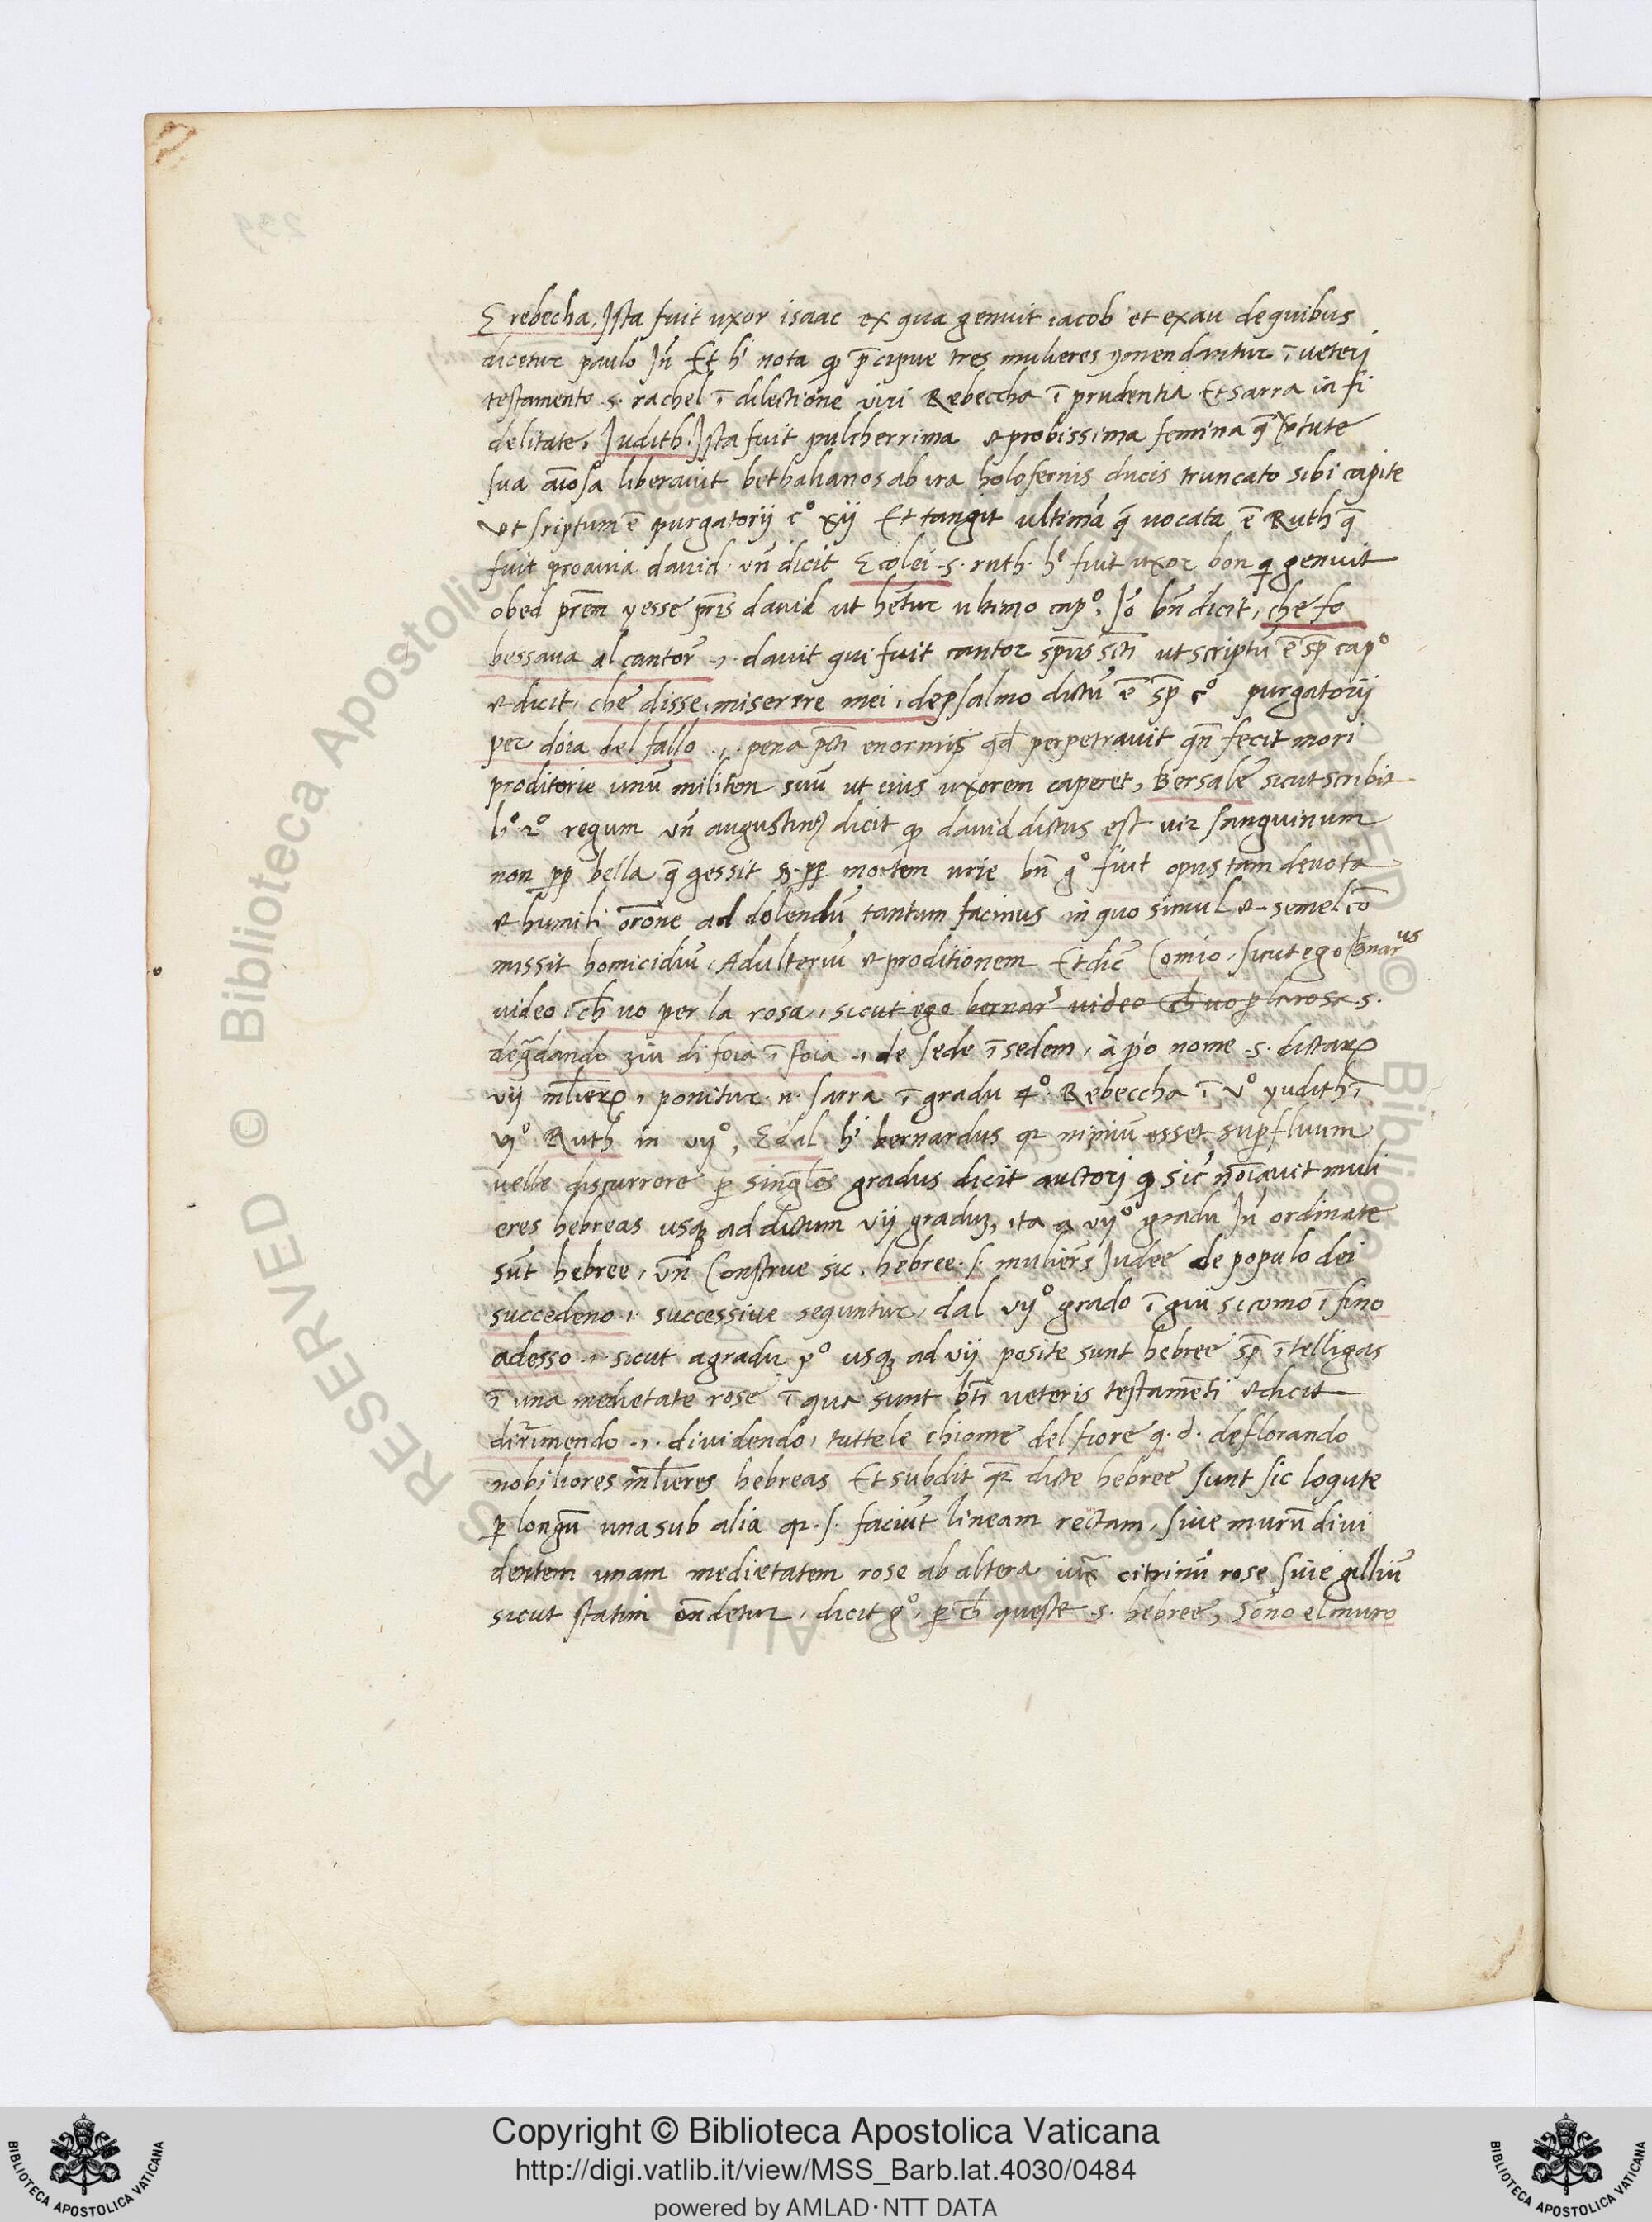 E rebecha, Ista fuit uxor isaac ex qua genuit iacob et exau de quibus
dicetur paulo Iñ Et h' nota ꝙ p̄cipue tres mulieres ꝯmendantur ī veterj
testamento .s. rachel ī dilectione viri Rebeccha ī prudentia Et sarra in fi
delitate, Iudith. Ista fuit pulcherrima et probissima femina q̄ v̄tute
sua aīosa liberavit bethalianos ab ira holofernis ducis truncato sibi capite
vt scriptum ē purgatorij c° xij Et tangit ultimā q̄ vocata ē Ruth q̄
fuit proavia david. vn̄ dicit E colei .s. ruth. h° fuit uxor bon q̨ genuit
obed pr̄em yesse pr̄is david ut hētur ultimo cap°, Iō bn̄ dicit, che fo
bessava al cantor̄ .i. davit qui fuit cantor sp̄us sc̄ti ut scriptū ē sp̄ cap°
et dicit, che disse, miserere mei, de psalmo dictū ē sp̄ c° purgatorij
per doia del fallo .i. pena p̄cti enormis qd̄ perpetravit qn̄ fecit mori
proditorie unū militem suū ut eius uxorem caperet, Bersale sicut scribit
l° 2° regum vn̄ augustinꝰ dicit ꝙ david dictus est vir sanguinum
non ꝓp bella q̄ gessit sꝫ ꝓp mortem urie bn̄ g° fuit opus tam devota
et humili or̄one ad dolendū tantum facinus in quo simul et semel cō
missit homicidiū, Adulteriū et proditionem Et dic̄ Comio, sicut ego b̄nar^us
video, ch̄ vo per la rosa, sicut ego bernarꝰ video ch̄ vo ꝑ la rosa .s.
deg̃dando giu di foia ī foia .i. de sede ī sedem, à p̄o nome .s. dictaꝝ
vij ml̄ierꝝ, ponitur .n. sarra ī gradu 4° Rebeccha ī v° yudith ī
vj° Ruth in vij°, E dal h' bernardus qꝛ nimiū esset suꝑfluum
velle discurrere ꝑ singl̄os gradus dicit auctorj ꝙ sic̄ noīavit muli
eres hebreas usqꝫ ad dictum vij graduꝫ, ita a vij° gradu Iñ ordinate
sūt hebree, vn̄ Construe sic. hebree .s. mulier̄s Iudee de populo dei
succedeno .i. successive seguntur, dal vij° grado ī giu sicomo ī fino
adesso .i. sicut a gradu p° usqꝫ ad vij posite sunt hebree sp̄ ītelligas
ī una medietate rose ī qua sunt bt̄i veteris testamēti et dicit
dirīmendo .i. dividendo, tutte le chiome del fiore q. d. deflorando
nobiliores ml̄ieres hebreas Et subdit qꝛ dicte hebree sunt sic logute
ꝑ longū una sub alia qꝛ .s. faciūt lineam rectam, sive murū divi
dentem unam medietatem rose ab altera iux̄ citrinū rose sive gilliū
sicut statim on̄detur, dicit g°, ꝑ ch̄ queste .s. hebree, sono el muro
Copyright © Biblioteca Apostolica Vaticana
http://digi.vatlib.it/view/MSS_Barb.lat.4030/0484
powered by AMLAD·NTT DATA